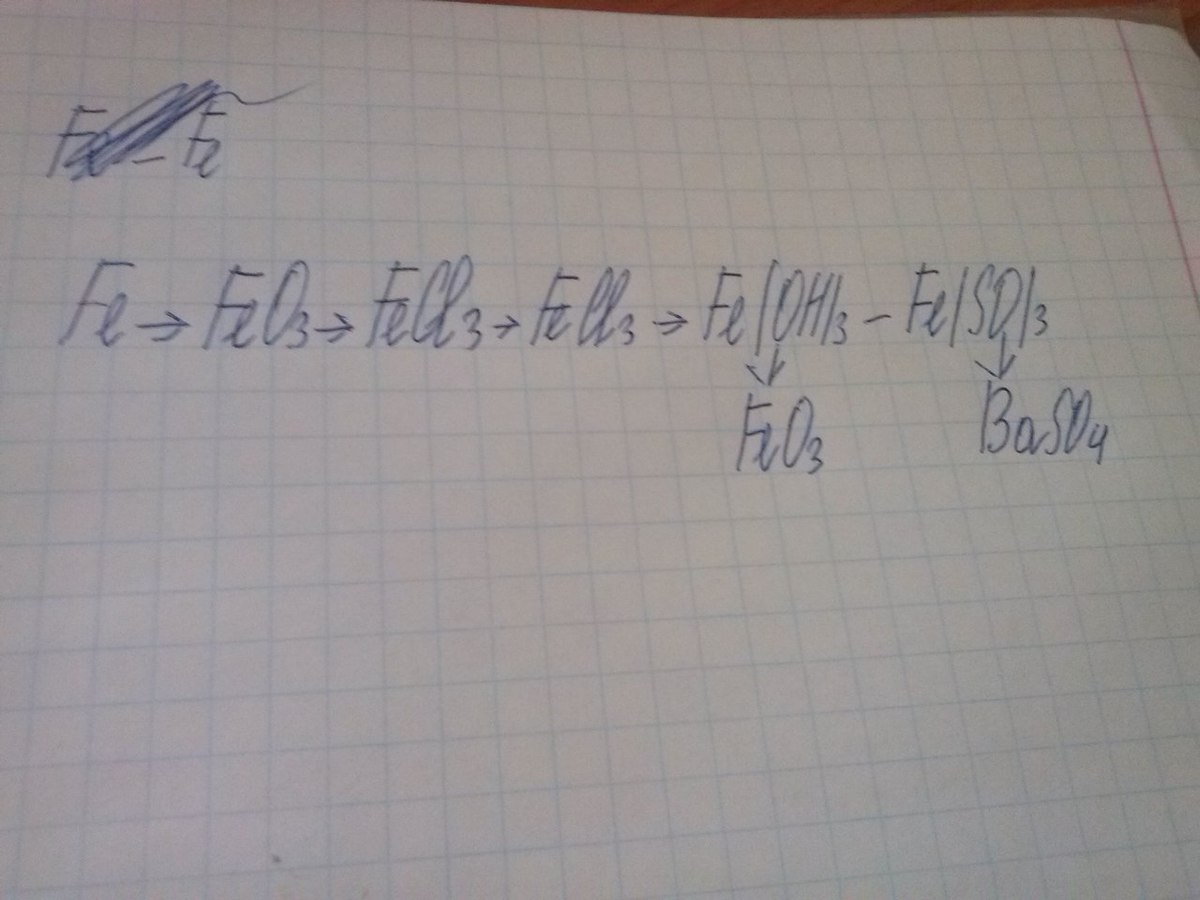 Fe - Fe
Fe → FeO3 → FeCl3 → FeCl3 → Fe(OH)3 - Fe(SO)3
↓ ↓
FeO3 BaSO4